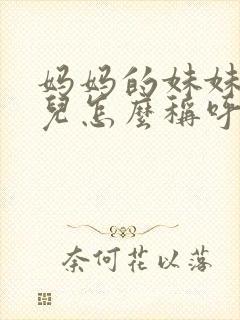 妈妈的妹妹
兒怎麼稱呼
奈何花以落